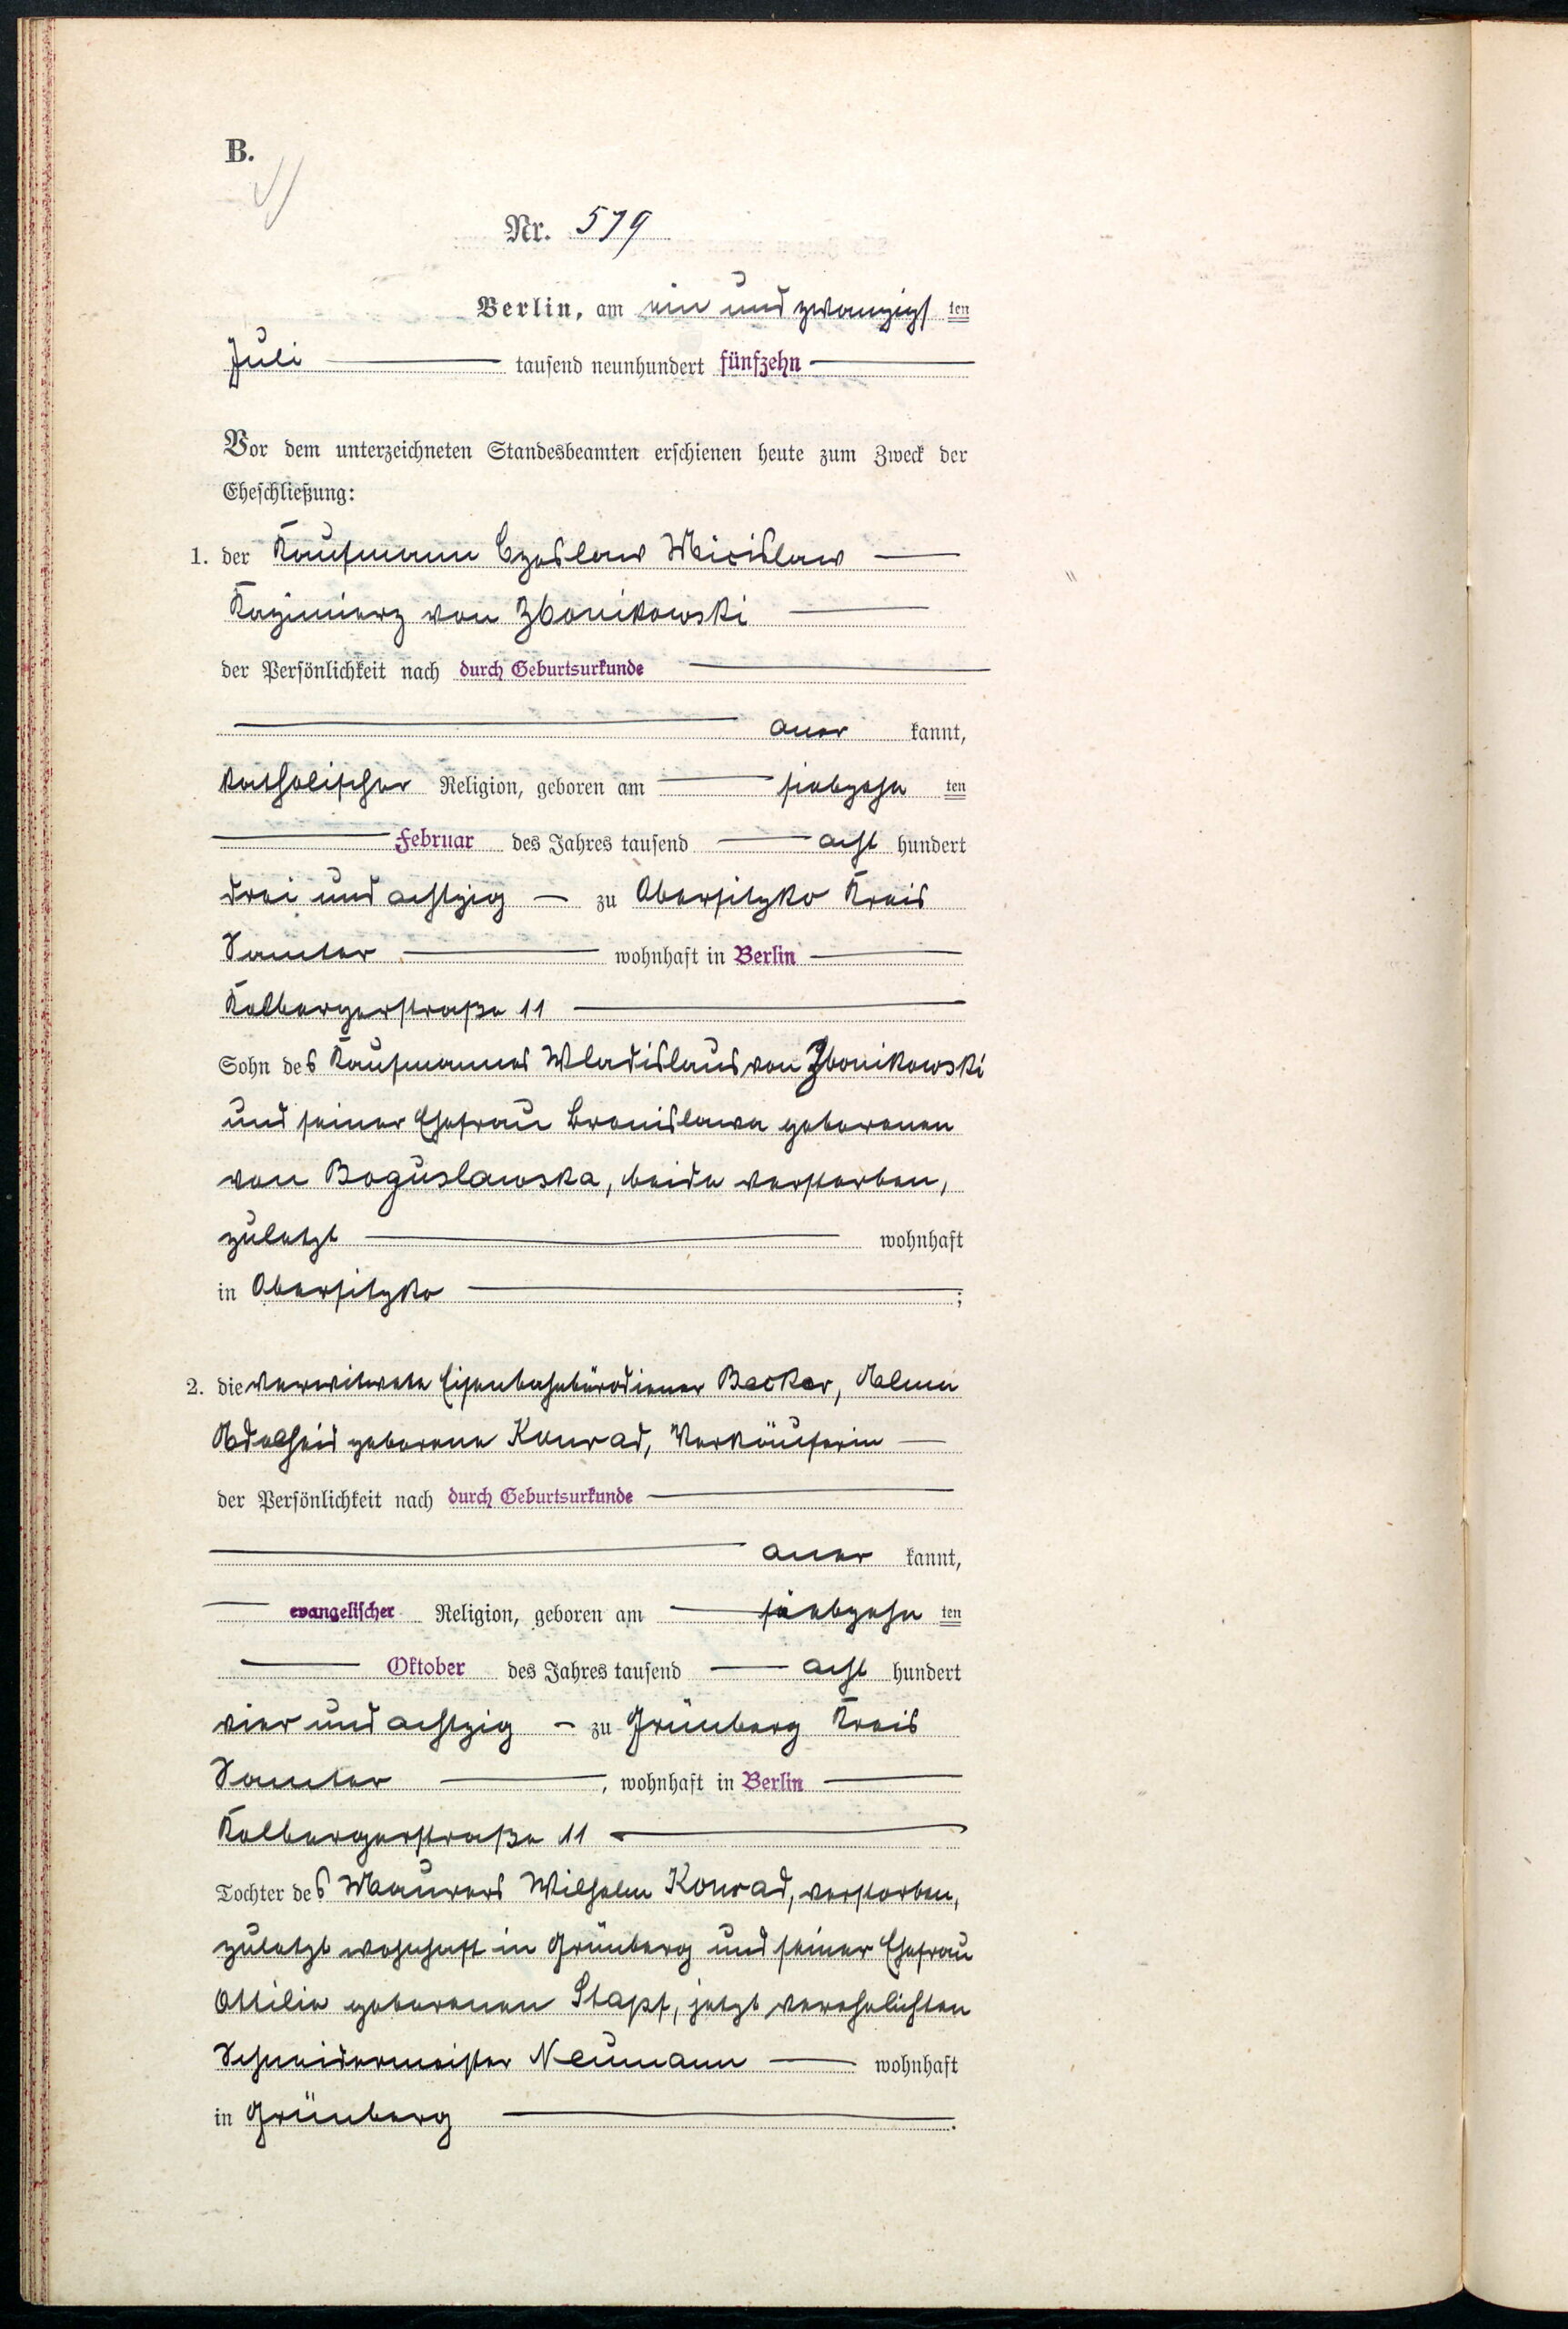 B.
Nr. 579
Berlin, am ein und zwanzigs ten
Juli tausend neunhundert fünfzehn
Vor dem unterzeichneten Standesbeamten erschienen heute zum Zweck der
Eheschließung:
1. der Kaufmann Czeslaw Micislaw
Kazimierz von Zbonikowski
der Persönlichkeit nach durch Geburtsurkunde
aner kannt,
katholischer Religion, geboren am siebzehn ten
Februar des Jahres tausend acht hundert
drei und achtzig zu Obersitzko Kreis
Samter wohnhaft in Berlin
Kolbergerstraße 11
Sohn des Kaufmannes Wladislaus von Zbonikowski
und seiner Ehefrau Bronislawa geborenen
von Boguslawska, beide verstorben,
zuletzt wohnhaft
in Obersitzko ;
2. die verwitwete Eisenbahnbürodiener Becker,
Adelheid geborene Konrad, Verkäuferin
der Persönlichkeit nach durch Geburtsurkunde
aner kannt,
evangelischer Religion, geboren am siebzehn ten
Oktober des Jahres tausend acht hundert
vier und achtzig - zu Grünberg Kreis
Samter , wohnhaft in Berlin
Kolbergerstraße 11
Tochter des Maurers Wilhelm Konrad, verstorben,
zuletzt wohnhaft in Grünberg und seiner Ehefrau
Ottilie geborenen Stapf, jetzt verehelichten
Schneidermeister Neumann wohnhaft
in Grünberg .